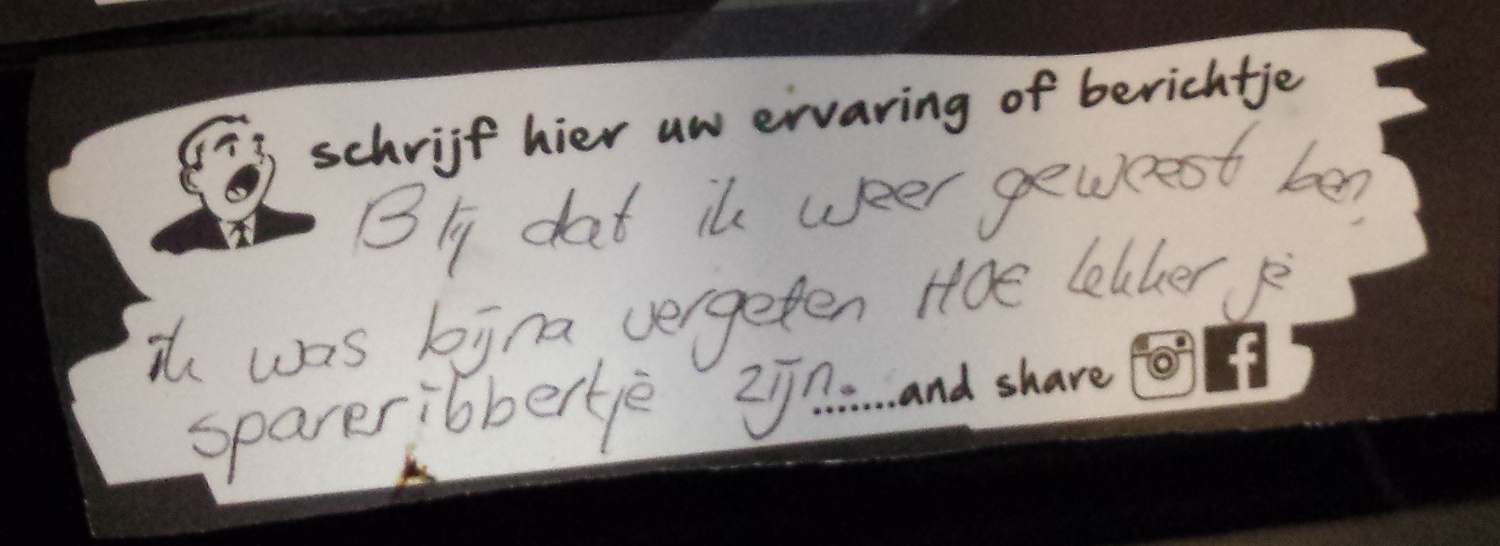 schrijf hier uw ervaring of berichtje
Blij dat ik weer geweest ben
ik was bijna vergeten HOE lekker je
spareribbertje zijn.
.......and share f